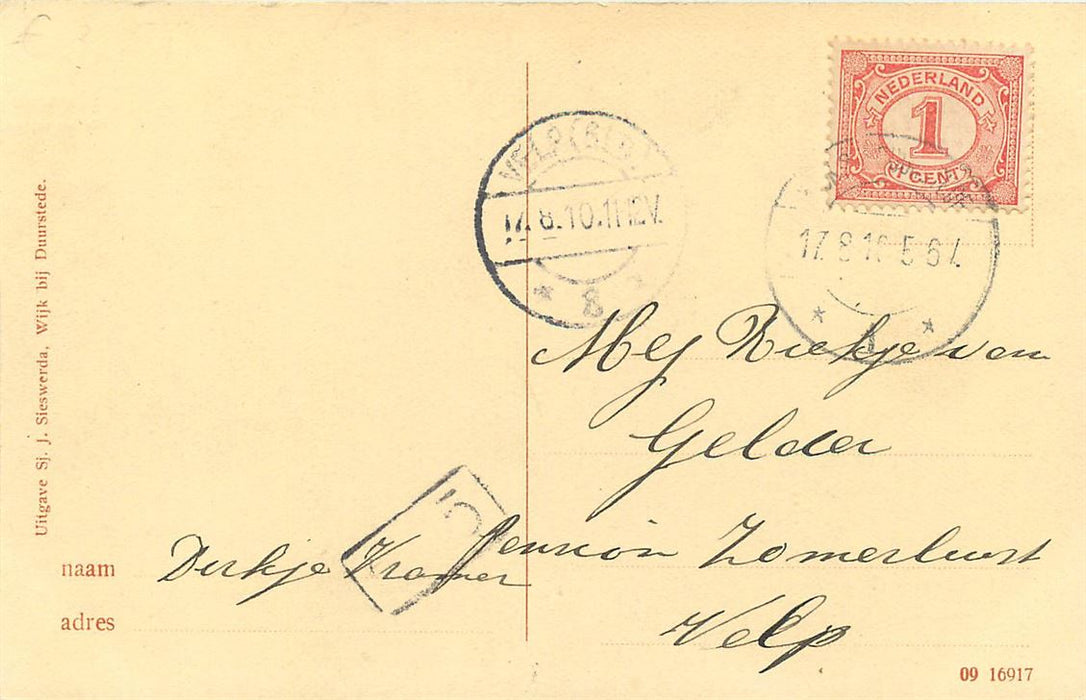 NEDERLAND
1
CENT
VELP (GLD.)
17.8.10.11-12V.
17 8 10 5-6
Uitgave Sj. J. Sieswerda, Wijk bij Duurstede.
Mej Riekje van
Gelder
Pension Zomerlust
Velp
naam Dirkje Kramer
adres
5
09 16917